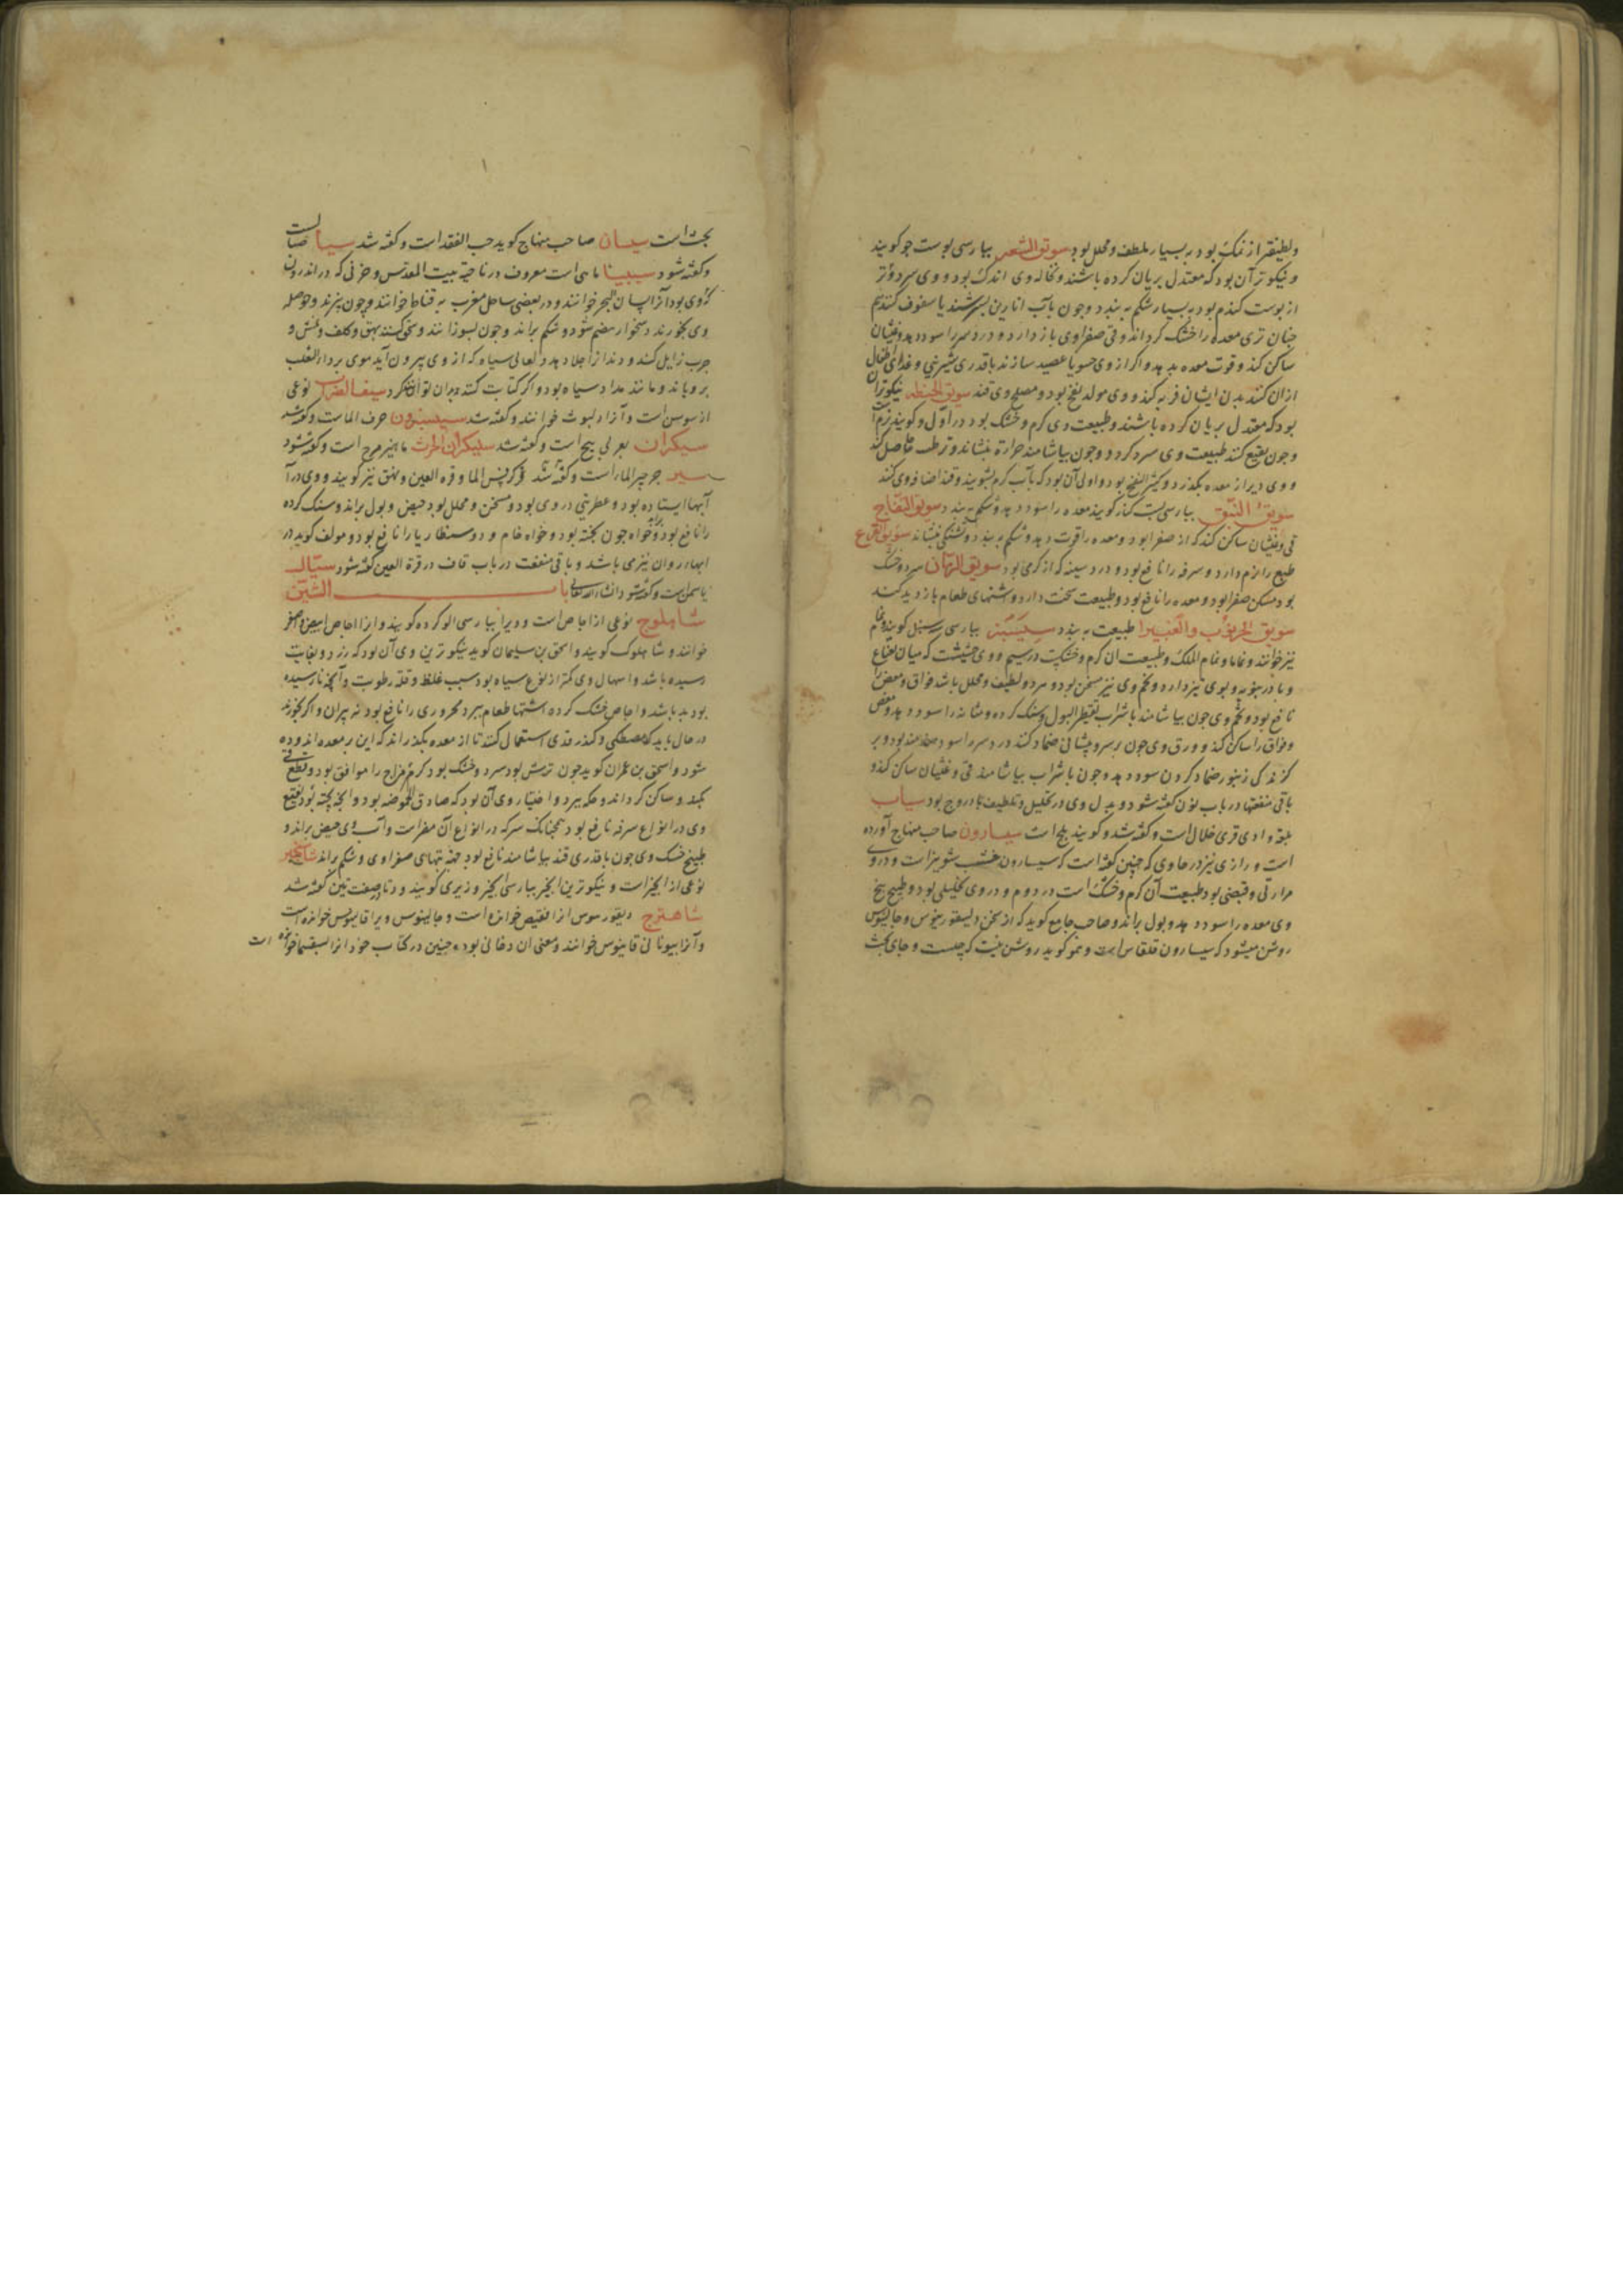 ولطیفتر از نمک بود و بسیار ملطف و محلل بود سویق الشعیر بپارسی پوست جو کویند
و نیکوتر آن بود که معتدل بریان کرده باشند و نخاله وی اندک بود و وی سردتر
از پوست کندم بود و بسیار شکم به بندد و چون بآب انارین بسرشند یا سفوف کنند هم
چنان تری معده را خشک کرداند و قی صفراوی باز دارد و درد سر را سود دهد و غثیان
ساکن کند و قوت معده بدهد و اکر از وی حسو یا عصید سازند باقدری شیرینی و غذای اطفال
ازان کنند بدن ایشان فربه کند و وی مولد نفخ بود و مصلح وی قند سویق الحنطه نیکوتر آن
بود که معتدل بریان کرده باشند و طبیعت وی کرم و خشک بود در اول و کویند نرم است
و چون نقیع کنند طبیعت وی سرد کردد و چون بیاشامند حرارة بنشاند و ترطیب حاصل کند
و وی دیر از معده بکذرد و کثیر النفخ بود و اولی آن بود که بآب کرم بشویند و قند اضافه وی کنند
سویق النبق بپارسی پست کنار کویند معده را سود دهد و شکم به بندد سویق التفاح
قی و غثیان ساکن کند که از صفرا بود و معده را قوت دهد و شکم به بندد و تشنکی بنشاند سویق القرع
طبع را نرم دارد و سرفه را نافع بود و درد سینه که از کرمی بود سویق الرمان سرد و خشک
بود مسکن صفرا بود و معده را نافع بود و طبیعت سخت دارد و اشتهای طعام باز دید کند
سویق الخرنوب والغبیرا طبیعت به بندد سیسنبر بپارسی سوسنبل کویند و نمام
نیز خوانند و نماما و نمام الملک و طبیعت آن کرم و خشکست در سیم و وی حشیشت که میان نعناع
و بادرنبویه و بوی تیز دارد و تخم وی نیز مسخن بود و مر د و لطیف و محلل باشد فواق و مغص را
نافع بود و تخم وی چون بیاشامند باشراب تقطیر البول و سنک کرده و مثانه را سود دهد و مغص
و فواق را ساکن کند و ورق وی چون بر سر و پیشانی ضماد کنند درد سر را سودمند بود و بر
کزندکی زنبور ضماد کردن سود دهد و چون باشراب بیاشامند قی و غثیان ساکن کند و
باقی منفعتها در باب نون کفته شود و بدل وی در تحلیل و تلطیف بادروج بود سیاب
بلغة وادی قری خلال است و کفته شد و کویند بلح است سیسارون صاحب منهاج آورده
است و رازی نیز در حاوی که چنین کفته است که سیسارون خشب شونیز است و در وی
مرارتی و قبضی بود طبیعت آن کرم و خشک است در دوم و در وی تحلیلی بود و طبیخ بیخ
وی معده را سود دهد و بول براند و صاحب جامع کوید که از سخن دیسقوریدوس و جالینوس
روشن میشود که سیسارون قلقاس است و نمو کوید روشن نیست که چیست و جای بحث
بحث است سیسبان صاحب منهاج کوید حب الفقد است و کفته شد سیا صبا است
و کفته شود سیبیا ماهی است معروف در ناحیة بیت المقدس و خزفی که در اندرون
وی بود آنرا لسان البحر خوانند و در بعضی ساحل مغرب به قناطا خوانند و چون بپزند و حوصله
وی بخورند دشخوار هضم شود و شکم براند و چون بسوزانند و سحق کنند بهق و کلف و نمش و
جرب زایل کند و دندانرا جلا دهد و لعابی سیاه که از وی بیرون آید موی بر داء الثعلب
برویاند و مانند مداد سیاه بود و اکر کتابت کنند بدان توان کرد سیف الغراب نوعی
از سوسن است و آنرا دلبوث خوانند و کفته شد سیسنبرون حرف الماست و کفته شد
سیکران بعربی بنج است و کفته شد سیکران الحوت ماهیزهرج است و کفته شود
سیر جرجیر الماء است و کفته شد و کرفس الما و قرة العین و بهق نیز کویند و وی در آ
آبهای ایستاده بود و عطریتی در وی بود و مسخن و محلل بود حیض و بول براند و سنک کرده
را نافع بود و خواه چون پخته بود و خواه خام و دوسنطاریا را نافع بود و مولف کوید در
آبهاء روان نیز می باشد و باقی منفعت در باب قاف در قرة العین کفته شود سیال
یاسمن است و کفته شود انشاءالله تعالی باب الشین
شاهلوج نوعی از اجاص است و ویرا بپارسی الو کرده کویند و آنرا اجاص ابیض و اصفر
خوانند و شاهلوک کویند و اسحق بن سلیمان کوید نیکوترین وی آن بود که زرد و بغایت
رسیده باشد و اسهال وی کمتر از نوع سیاه بود بسبب غلظ و قلة رطوبت و آنچه نارسیده
بود بد باشد و اجاص خشک کرده اشتهاء طعام ببرد محروری را نافع بود نه پیران و اکر بخورند
در حال باید که مصطکی و کندر قدری استعمال کنند تا از معده بکذراند که این بر معده اندوده
شود و اسحق بن عمران کوید چون ترش بود سرد و خشک بود کرم مزاج را موافق بود و قطع قی
بکند و ساکن کرداند و حکه ببرد و اختیار وی آن بود که صادق الحموضه بود و آنچه پخته بود نقیع
وی در انواع سرفه نافع بود همچنانک سرکه در انواع آن مضراست و آب وی حیض براند و
طبیخ خشک وی چون باقدری قند بیاشامند نافع بود جهة تبهای صفراوی و شکم براند شاه انجیر
نوعی از انجیر است و نیکوترین انجیر بپارسی انجیر وزیری کویند و در تا بصفت تین کفته شد
شاهترج دیقوریدوس آنرا قفنیص خوانده است و جالینوس ویرا قاپنوس خوانده است
و آنرا بیونانی قاپنوس خوانند و معنی آن دخانی بود و حنین در کتاب خود آنرا بسقسما خوانده است